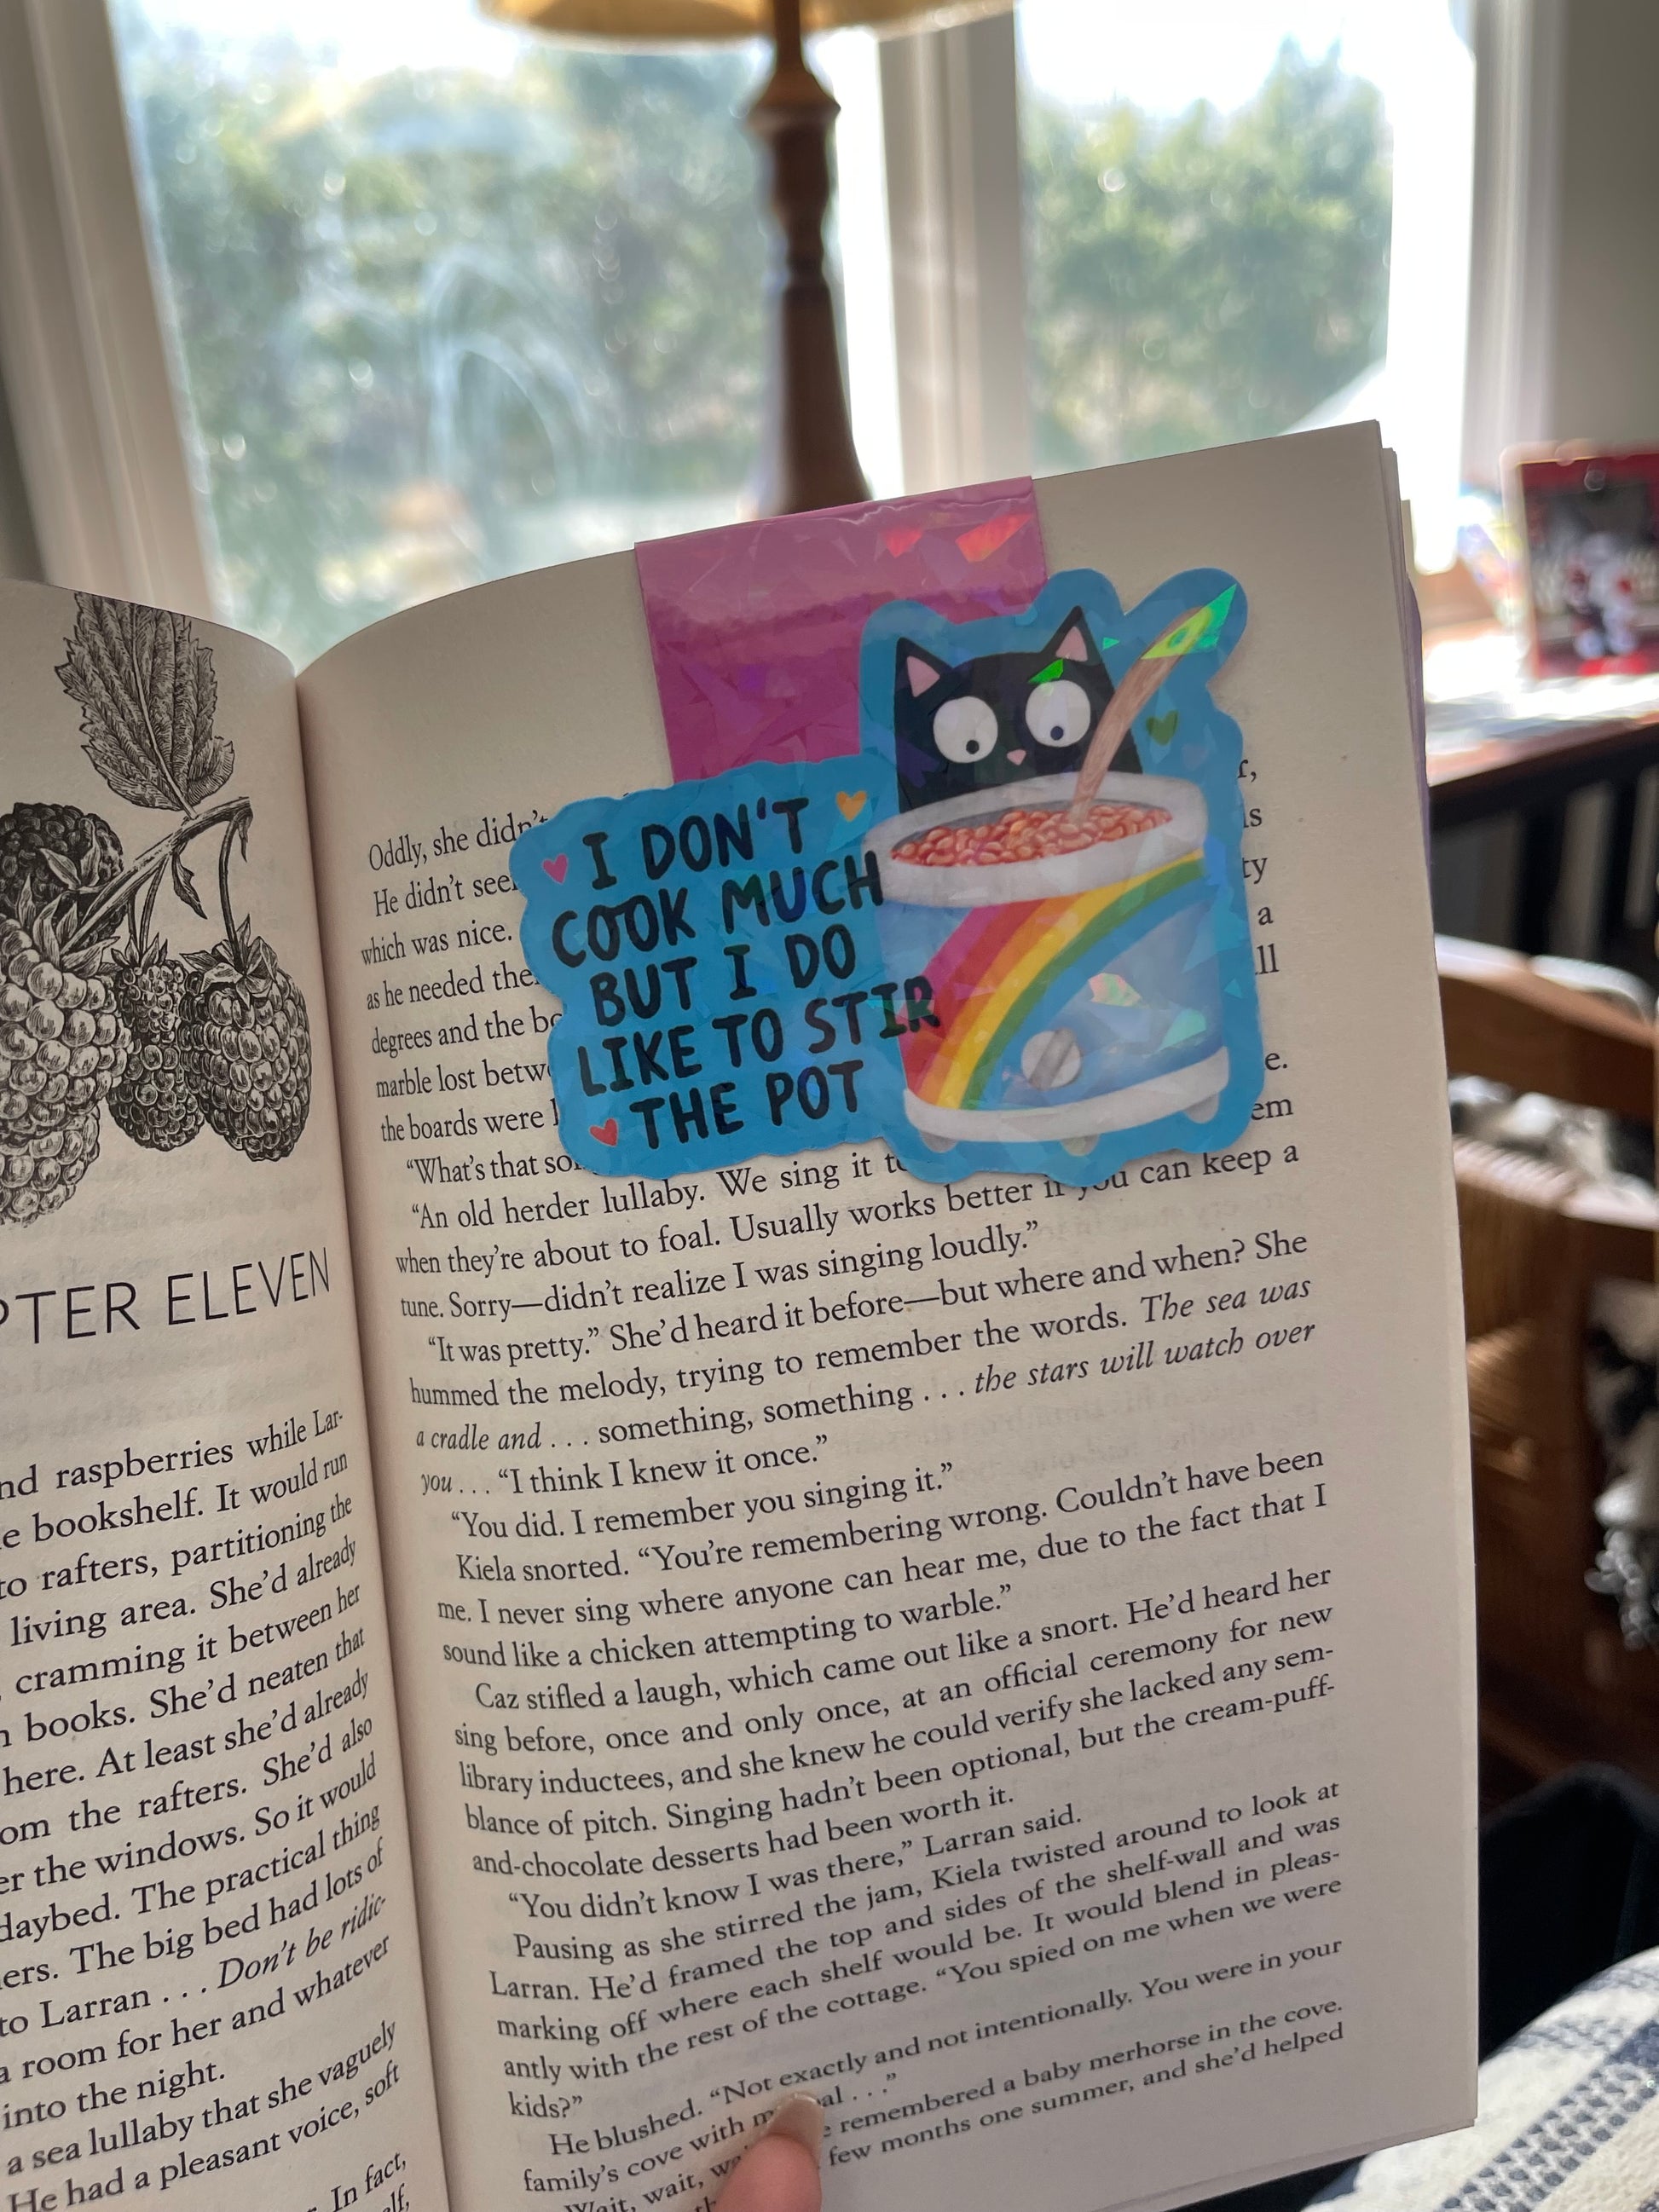 PTER ELEVEN
nd raspberries while Lar-
e bookshelf. It would run
to rafters, partitioning the
living area. She'd already
cramming it between her
books. She'd neaten that
here. At least she'd already
om the rafters. She'd also
er the windows. So it would
daybed. The practical thing
ers. The big bed had lots of
to Larran . . . Don't be ridic-
a room for her and whatever
into the night.
a sea lullaby that she vaguely
He had a pleasant voice, soft
In fact,
I DON'T
COOK MUCH
BUT I DO
LIKE TO STIR
THE POT
Oddly, she didn't
He didn't see
which was nice.
as he needed the
degrees and the bo
marble lost betw
the boards were
"What's that so
"An old herder lullaby. We sing it
when they're about to foal. Usually works better if you can keep a
tune. Sorry—didn't realize I was singing loudly."
"It was pretty." She'd heard it before—but where and when? She
hummed the melody, trying to remember the words. The sea was
a cradle and . . . something, something . . . the stars will watch over
you . . . "I think I knew it once."
"You did. I remember you singing it."
Kiela snorted. "You're remembering wrong. Couldn't have been
me. I never sing where anyone can hear me, due to the fact that I
sound like a chicken attempting to warble."
Caz stifled a laugh, which came out like a snort. He'd heard her
sing before, once and only once, at an official ceremony for new
library inductees, and she knew he could verify she lacked any sem-
blance of pitch. Singing hadn't been optional, but the cream-puff-
and-chocolate desserts had been worth it.
"You didn't know I was there," Larran said.
Pausing as she stirred the jam, Kiela twisted around to look at
Larran. He'd framed the top and sides of the shelf-wall and was
marking off where each shelf would be. It would blend in pleas-
antly with the rest of the cottage. "You spied on me when we were
kids?"
He blushed. "Not exactly and not intentionally. You were in your
family's cove with . . ."
Wait, wait, remembered a baby merhorse in the cove.
few months one summer, and she'd helped